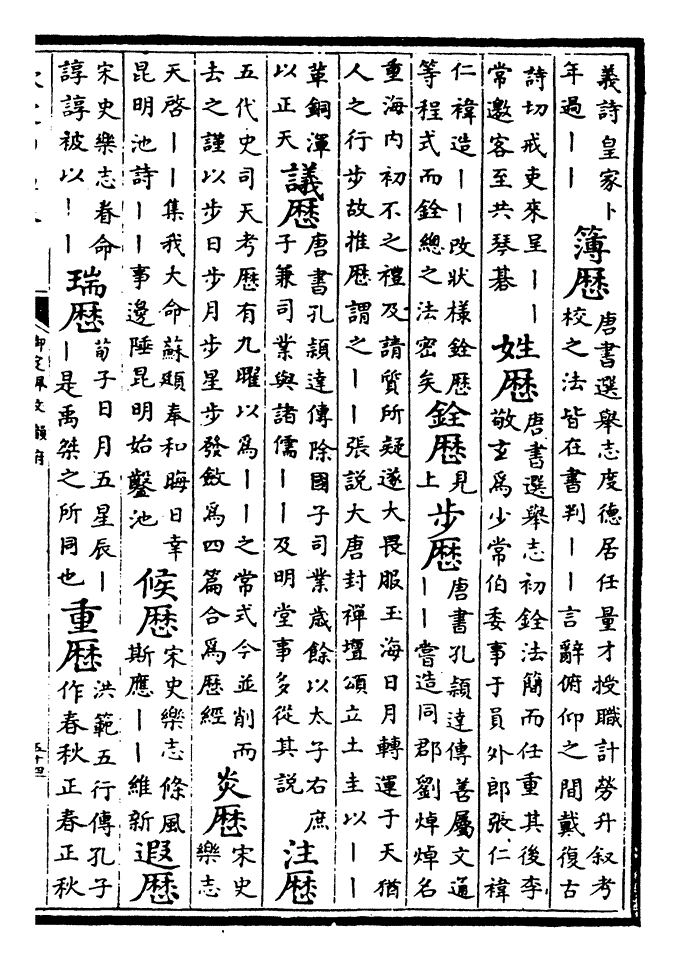 義詩皇家卜
年過｜｜
簿暦
唐書選舉志度德居任量才授職計勞升叙考
校之法皆在書判｜｜言辭俯仰之間戴復古
詩切戒吏來呈｜｜
常邀客至共琴碁
姓暦
唐書選舉志初銓法簡而任重其後李
敬玄爲少常伯委事于員外郎張仁禕
仁禕造｜｜改狀様銓暦
等程式而銓總之法密矣
銓暦
見
上
步暦
唐書孔頴達傳善屬文通
｜｜嘗造同郡劉焯焯名
重海内初不之禮及請質所疑遂大畏服玉海日月轉運于天猶
人之行步故推暦謂之｜｜張説大唐封禪壇頌立土圭以｜｜
革銅渾
以正天
議暦
唐書孔頴達傳除國子司業歳餘以太子右庶
子兼司業與諸儒｜｜及明堂事多從其説
注暦
五代史司天考暦有九曜以爲｜｜之常式今並削而
去之謹以步日步月步星步發斂爲四篇合爲暦經
炎暦
宋史
樂志
天啓｜｜集我大命蘇頲奉和晦日幸
昆明池詩｜｜事邊陲昆明始鑿池
候暦
宋史樂志條風
斯應｜｜維新
遐暦
宋史樂志眷命
諄諄被以｜｜
瑞暦
荀子日月五星辰｜
｜是禹桀之所同也
重暦
洪範五行傳孔子
作春秋正春正秋
御定佩文韻府
五十四